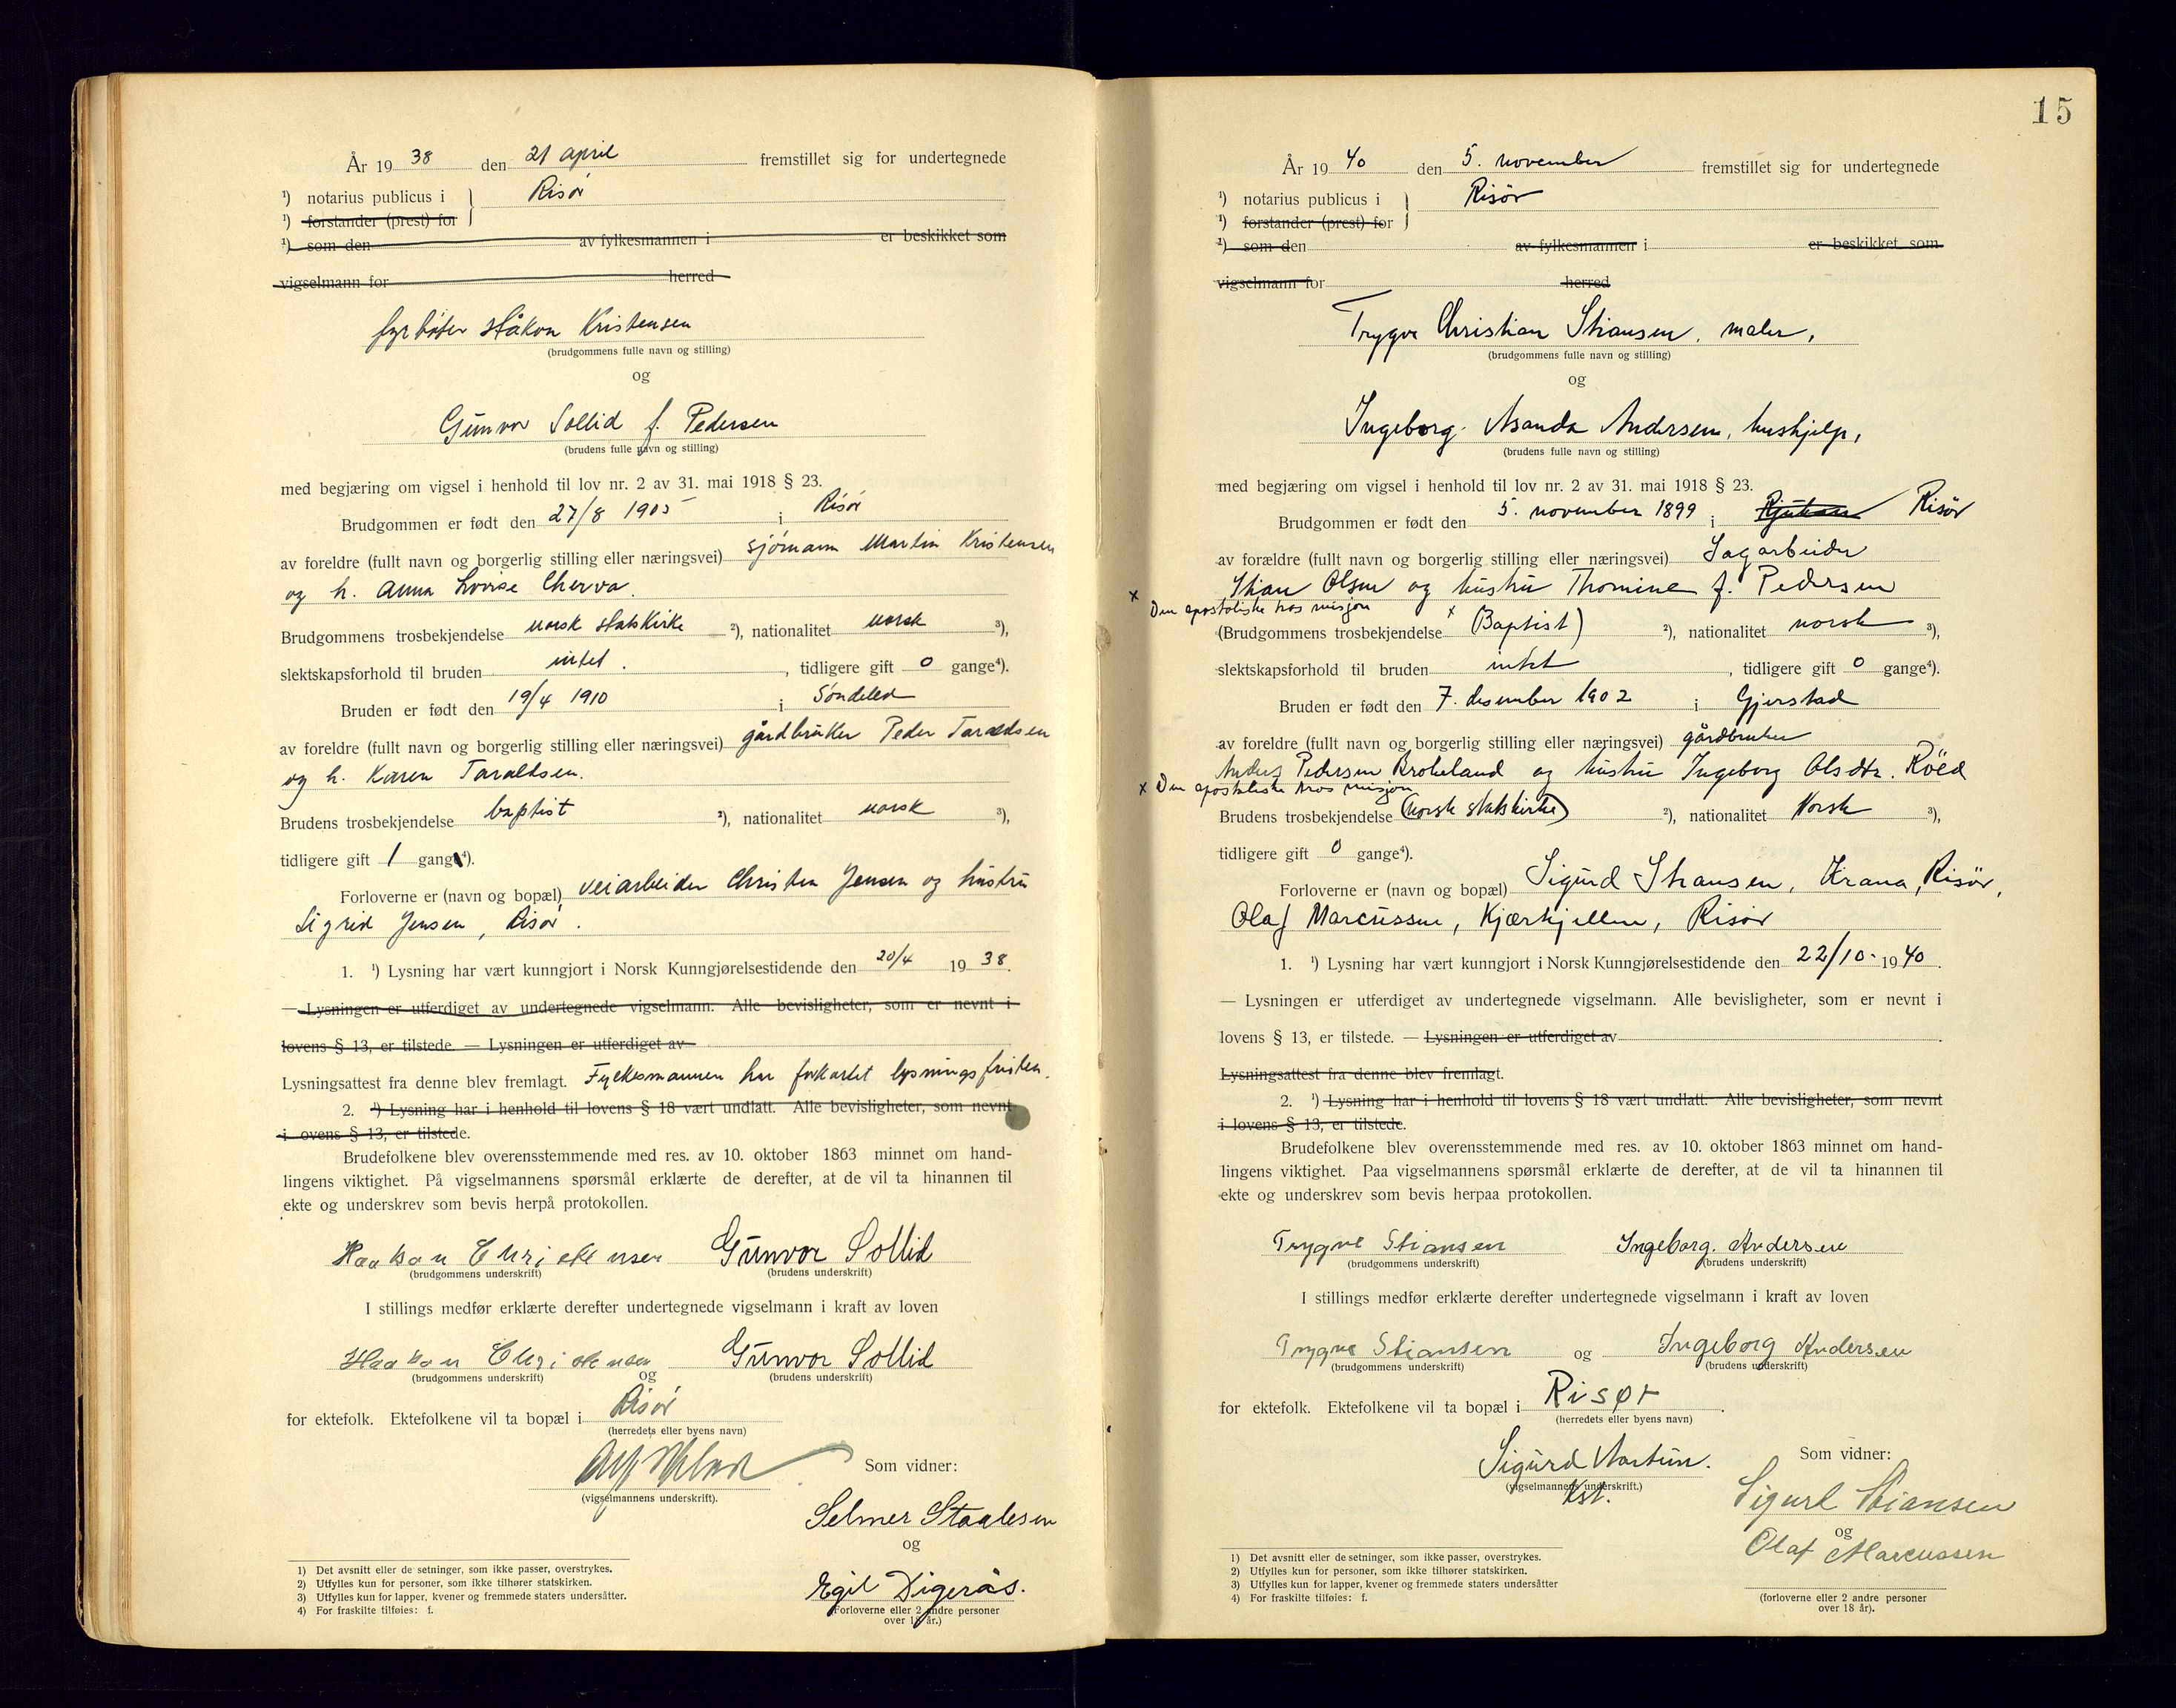 År 19 38 den 21 april fremstillet sig for undertegnede
¹) notarius publicus i } Risør
¹) forstander (prest) for
¹) som den av fylkesmannen i er beskikket som
vigselmann for herred
fyrbøter Håkon Kristensen
(brudgommens fulle navn og stilling)
og
Gunvor Sollid f. Pedersen
(brudens fulle navn og stilling)
med begjæring om vigsel i henhold til lov nr. 2 av 31. mai 1918 § 23.
Brudgommen er født den 27/8 1905 i Risør
av foreldre (fullt navn og borgerlig stilling eller næringsvei) sjømann Martin Kristensen
og h. Anna Lovise Cherva.
Brudgommens trosbekjendelse norsk statskirke ²), nationalitet norsk ³),
slektskapsforhold til bruden intet. , tidligere gift 0 gange⁴).
Bruden er født den 19/4 1910 i Søndeled
av foreldre (fullt navn og borgerlig stilling eller næringsvei) gårdbruker Peder Taraldsen
og h. Karen Taraldsen.
Brudens trosbekjendelse baptist ²), nationalitet norsk ³),
tidligere gift 1 gang⁴).
Forloverne er (navn og bopæl) veiarbeider Christen Jensen og hustru
Sigrid Jensen, Risør.
1. ¹) Lysning har vært kunngjort i Norsk Kunngjørelsestidende den 20/4 19 38.
— Lysningen er utferdiget av undertegnede vigselmann. Alle bevisligheter, som er nevnt i
lovens § 13, er tilstede. — Lysningen er utferdiget av
Lysningsattest fra denne blev fremlagt. Fylkesmannen har forkortet lysningsfristen.
2. ¹) Lysning har i henhold til lovens § 18 vært undlatt. Alle bevisligheter, som nevnt
i lovens § 13, er tilstede.
Brudefolkene blev overensstemmende med res. av 10. oktober 1863 minnet om hand-
lingens viktighet. På vigselmannens spørsmål erklærte de derefter, at de vil ta hinannen til
ekte og underskrev som bevis herpå protokollen.
Haakon Christensen Gunvor Sollid
(brudgommens underskrift) (brudens underskrift)
I stillings medfør erklærte derefter undertegnede vigselmann i kraft av loven
Haakon Christensen Gunvor Sollid
(brudgommens underskrift) og (brudens underskrift)
for ektefolk. Ektefolkene vil ta bopæl i Risør
(herredets eller byens navn)
Som vidner:
(vigselmannens underskrift).
Selmer Staalesen
og
Egil Digerås.
(Forloverne eller 2 andre personer
over 18 år.)
1) Det avsnitt eller de setninger, som ikke passer, overstrykes.
2) Utfylles kun for personer, som ikke tilhører statskirken.
3) Utfylles kun for lapper, kvener og fremmede staters undersåtter.
4) For fraskilte tilføies: f.
15
År 19 40 den 5. november fremstillet sig for undertegnede
¹) notarius publicus i } Risør
¹) forstander (prest) for
¹) som den av fylkesmannen i er beskikket som
vigselmann for herred
Trygve Christian Stiansen, maler,
(brudgommens fulle navn og stilling)
og
Ingeborg Asanda Andersen, hushjelp,
(brudens fulle navn og stilling)
med begjæring om vigsel i henhold til lov nr. 2 av 31. mai 1918 § 23.
Brudgommen er født den 5. november 1899 i Rjukan Risør
av forældre (fullt navn og borgerlig stilling eller næringsvei) Sagarbeider
Stian Olsen og hustru Thomine f. Pedersen
x Den apostoliske tros misjon
(Brudgommens trosbekjendelse x (Baptist) ²), nationalitet norsk ³),
slektskapsforhold til bruden intet , tidligere gift 0 gange⁴).
Bruden er født den 7. desember 1902 i Gjerstad
av foreldre (fullt navn og borgerlig stilling eller næringsvei) gårdbruker
Anders Pedersen Brokeland og hustru Ingeborg Olsdtr. Röed
x Den apostoliske tros misjon
Brudens trosbekjendelse (norsk statskirke) ²), nationalitet Norsk ³),
tidligere gift 0 gange⁴).
Forloverne er (navn og bopæl) Sigurd Stiansen, Krana, Risør,
Olaf Marcussen, Kjærkjellen, Risør
1. ¹) Lysning har vært kunngjort i Norsk Kunngjørelsestidende den 22/10- 19 40.
— Lysningen er utferdiget av undertegnede vigselmann. Alle bevisligheter, som er nevnt i
lovens § 13, er tilstede. — Lysningen er utferdiget av .
Lysningsattest fra denne blev fremlagt.
2. ¹) Lysning har i henhold til lovens § 18 vært undlatt. Alle bevisligheter, som nevnt
i lovens § 13, er tilstede.
Brudefolkene blev overensstemmende med res. av 10. oktober 1863 minnet om hand-
lingens viktighet. Paa vigselmannens spørsmål erklærte de derefter, at de vil ta hinannen til
ekte og underskrev som bevis herpaa protokollen.
Trygve Stiansen Ingeborg. Andersen
(brudgommens underskrift) (brudens underskrift)
I stillings medfør erklærte derefter undertegnede vigselmann i kraft av loven
Trygve Stiansen og Ingeborg Andersen
(brudgommens underskrift) (brudens underskrift)
for ektefolk. Ektefolkene vil ta bopæl i Risør .
(herredets eller byens navn)
Sigurd Aartun. Som vidner:
(vigselmannens underskrift.)
Kst.
Sigurd Stiansen
og
Olaf Marcussen
(forloverne eller 2 andre personer
over 18 år).
1) Det avsnitt eller de setninger, som ikke passer, overstrykes.
2) Utfylles kun for personer, som ikke tilhører statskirken.
3) Utfylles kun for lapper, kvener og fremmede staters undersåtter
4) For fraskilte tilføies: f.